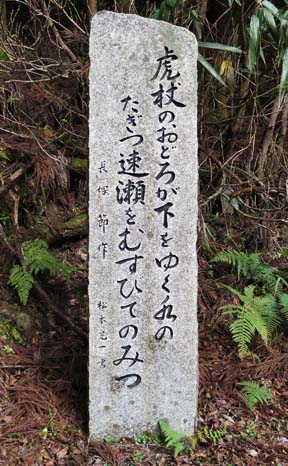 虎杖のおどろが下をゆく水の
たぎつ速瀬をむすびてのみつ
長塚節作